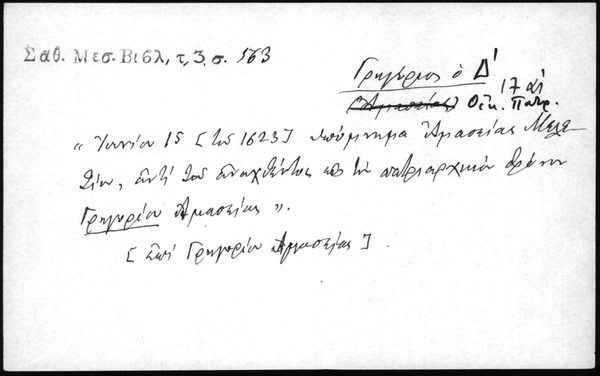 Σαθ. Μεσ. Βιβλ, τ, 3, σ. 563
Γρηγόριος ὁ Δ'
(Ἀμασείας) Οἰκ. Πατρ.
17 αἰ
" Ἰουνίου 15 [τοῦ 1623] ὑπόμνημα Ἀμασείας Μελε
τίου, ἀντὶ τοῦ ἀναχθέντος εἰς τὸν πατριαρχικὸν θρόνον
Γρηγορίου Ἀμασείας ".
[ ἐπὶ Γρηγορίου Ἀμασείας ] .